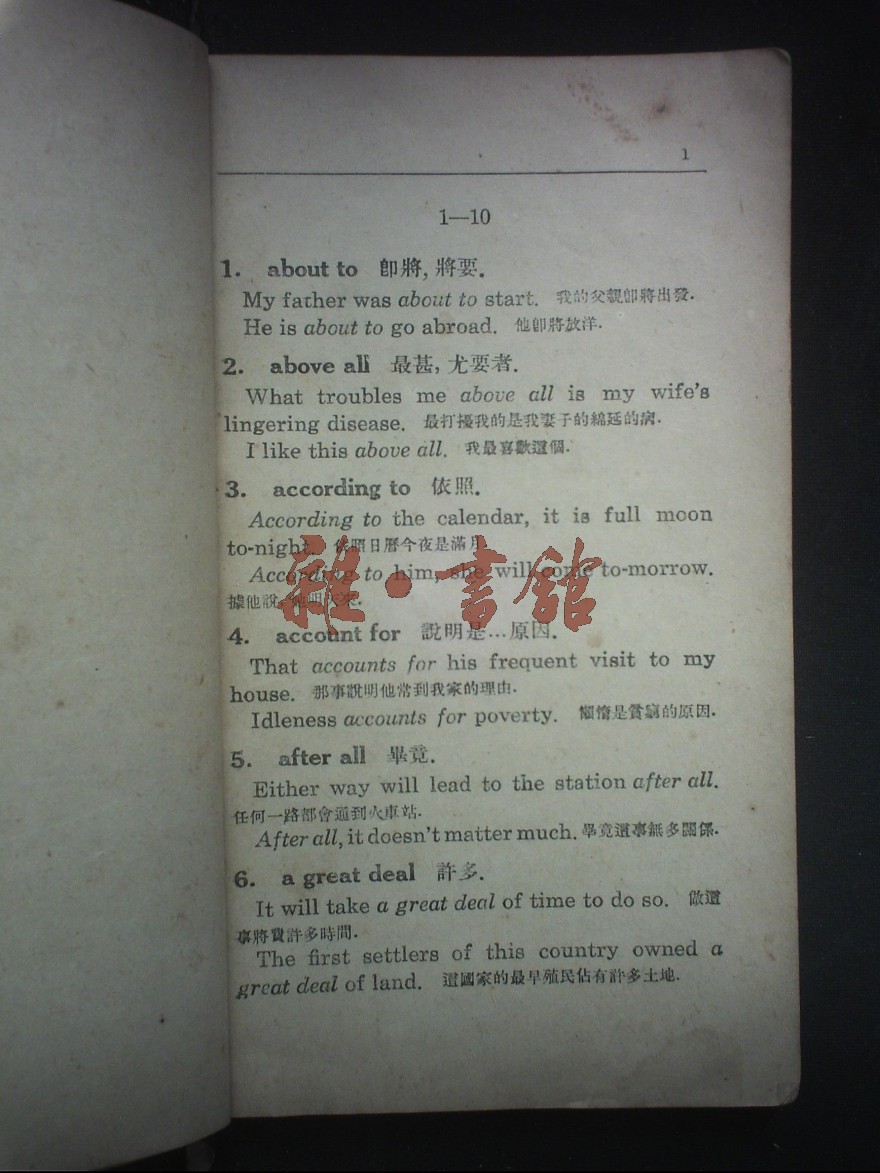 1
1—10
1. about to 卽將, 將要.
My father was about to start. 我的父親卽將出發.
He is about to go abroad. 他卽將放洋.
2. above all 最甚, 尤要者.
What troubles me above all is my wife's
lingering disease. 最打擾我的是我妻子的綿延的病.
I like this above all. 我最喜歡這個.
3. according to 依照.
According to the calendar, it is full moon
to-night. 依照日曆今夜是滿月
According to him, she will come to-morrow.
據他說, 她明天來.
雜·書館
4. account for 說明是…原因.
That accounts for his frequent visit to my
house. 那事說明他常到我家的理由.
Idleness accounts for poverty. 懶惰是貧窮的原因.
5. after all 畢竟.
Either way will lead to the station after all.
任何一路都會通到火車站.
After all, it doesn't matter much. 畢竟這事無多關係.
6. a great deal 許多.
It will take a great deal of time to do so. 做這
事將費許多時間.
The first settlers of this country owned a
great deal of land. 這國家的最早殖民佔有許多土地.